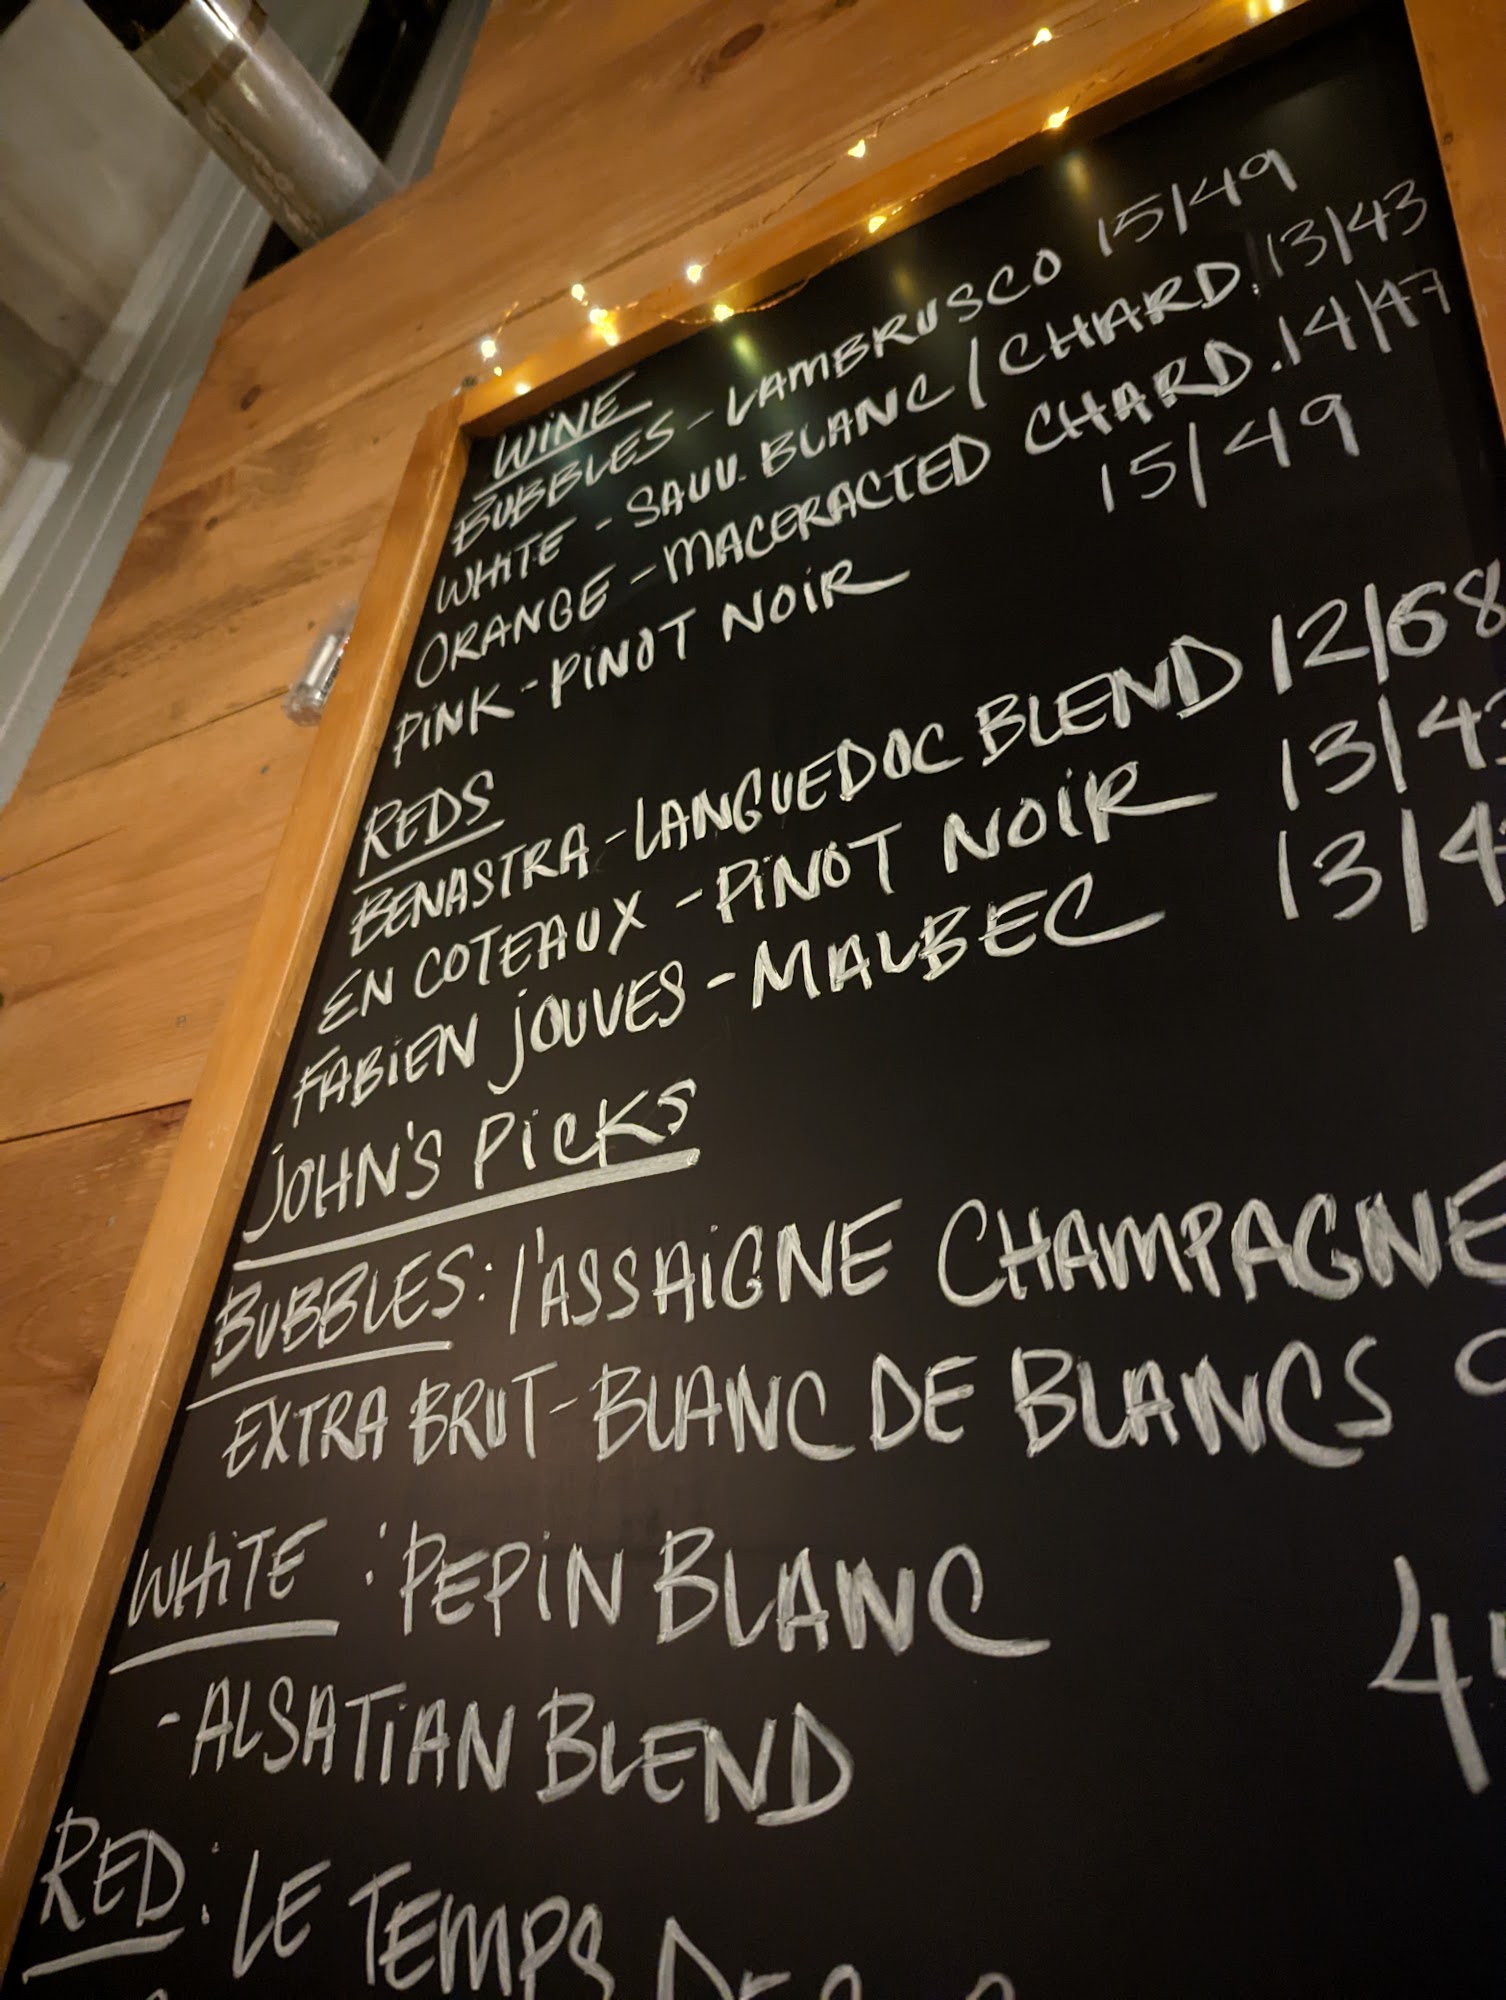 WINE
BUBBLES - LAMBRUSCO 15/49
WHITE - SAUV. BLANC / CHARD. 13/43
ORANGE - MACERACTED CHARD. 14/47
PINK - PINOT NOIR 15/49
REDS
BENASTRA - LANGUEDOC BLEND 12/68
EN COTEAUX - PINOT NOIR 13/43
FABIEN JOUVES - MALBEC 13/4
JOHN'S PICKS
BUBBLES: l'ASSAIGNE CHAMPAGNE
EXTRA BRUT - BLANC DE BLANCS
WHITE: PEPIN BLANC
- ALSATIAN BLEND
RED: LE TEMPS